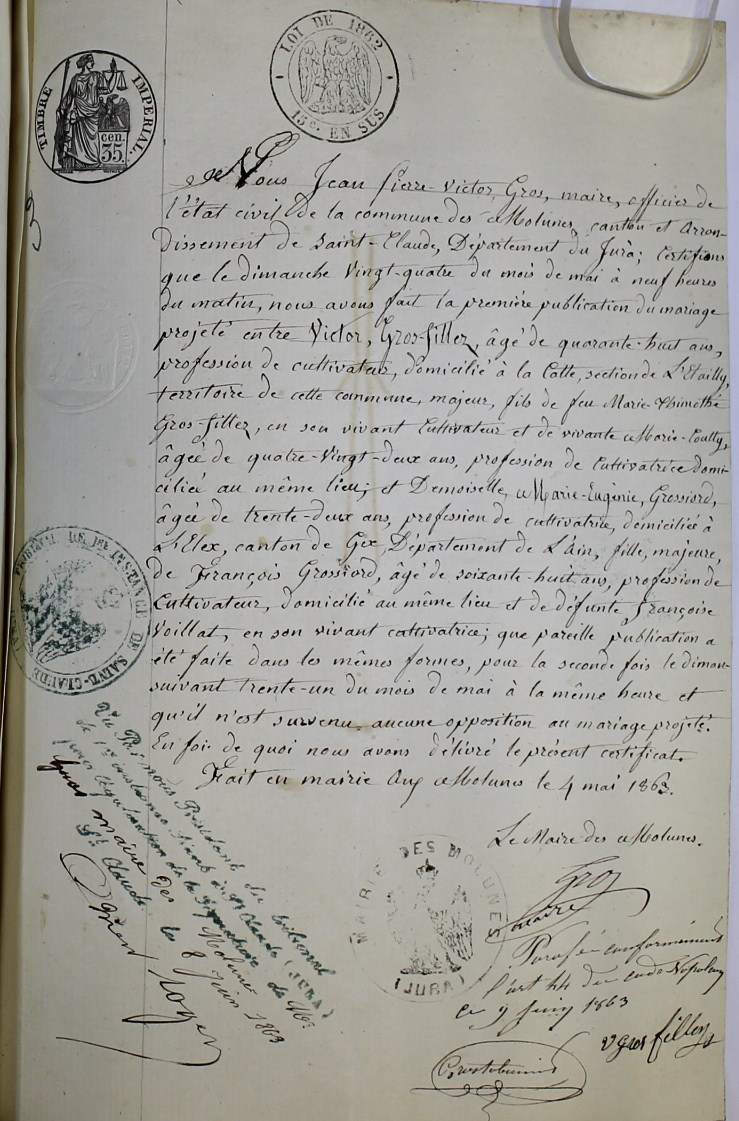 LOI DE 1862
15c. EN SUS
TIMBRE IMPERIAL.
cen.
35
3
Nous Jean Pierre-Victor, Gros, maire, officier de
l'état civil de la commune des Molunes, canton et Arron-
dissement de Saint-Claude, Département du Jura; Certifions
que le dimanche Vingt-quatre du mois de mai à neuf heures
du matin, nous avons fait la première publication du mariage
projeté entre Victor, Gros-fillez, âgé de quarante-huit ans,
profession de cultivateur, domicilié à la Catte, section de L'Etailly,
territoire de cette commune, majeur, fils de feu Marie-Thimothé
Gros-fillez, en son vivant Cultivateur et de vivante Marie-Coutty,
âgée de quatre-Vingt-deux ans, profession de Cultivatrice domi-
ciliée au même lieu; et Demoiselle, Marie-Eugénie, Grossiord,
âgée de trente-deux ans, profession de cultivatrice, domiciliée à
L'Elex, canton de Gex, Département de L'ain, fille, majeure,
de François Grossiord, âgé de soixante-huit ans, profession de
Cultivateur, domicilié au même lieu et de défunte Françoise
Voillat, en son vivant cultivatrice; que pareille publication a
été faite dans les mêmes formes, pour la seconde fois le diman-
suivant trente-un du mois de mai à la même heure et
qu'il n'est survenu aucune opposition au mariage projeté.
En foi de quoi nous avons délivré le présent certificat.
Fait en mairie Aux Molunes le 4 mai 1863.
Le Maire des Molunes.
Gros
maire
TRIBUNAL DE 1ere INSTANCE DE SAINT-CLAUDE
Vu Par nous Président du tribunal
de 1re instance séant à St Claude (JURA)
pour légalisation de la signature de Mr
Gros maire des Molunes
St Claude, le 8 juin 1863
MAIRIE DES MOLUNES
(JURA)
Parafé conformément
l'art 44 du code Napoléon
ce 9 juin 1863
v gros fillez